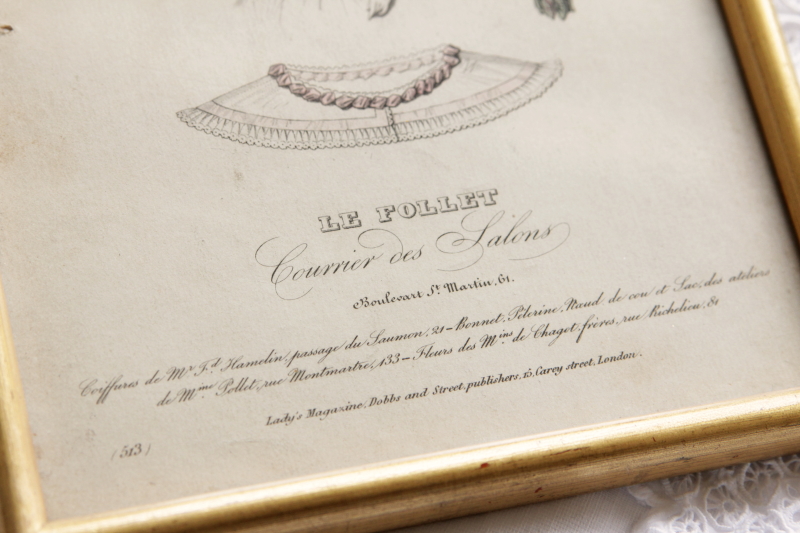 LE FOLLET
Courrier des Salons
Boulevart St. Martin, 61.
Coiffures de Mr. Fd. Hamelin, passage du Saumon, 21 – Bonnet, Pélerine, Nœud de cou et Sac, des ateliers
de Mme. Pollet, rue Montmartre, 133 – Fleurs des Mins. de Chagot frères, rue Richelieu, 81
Lady's Magazine, Dobbs and Street, publishers, 15, Carey street, London.
(513)